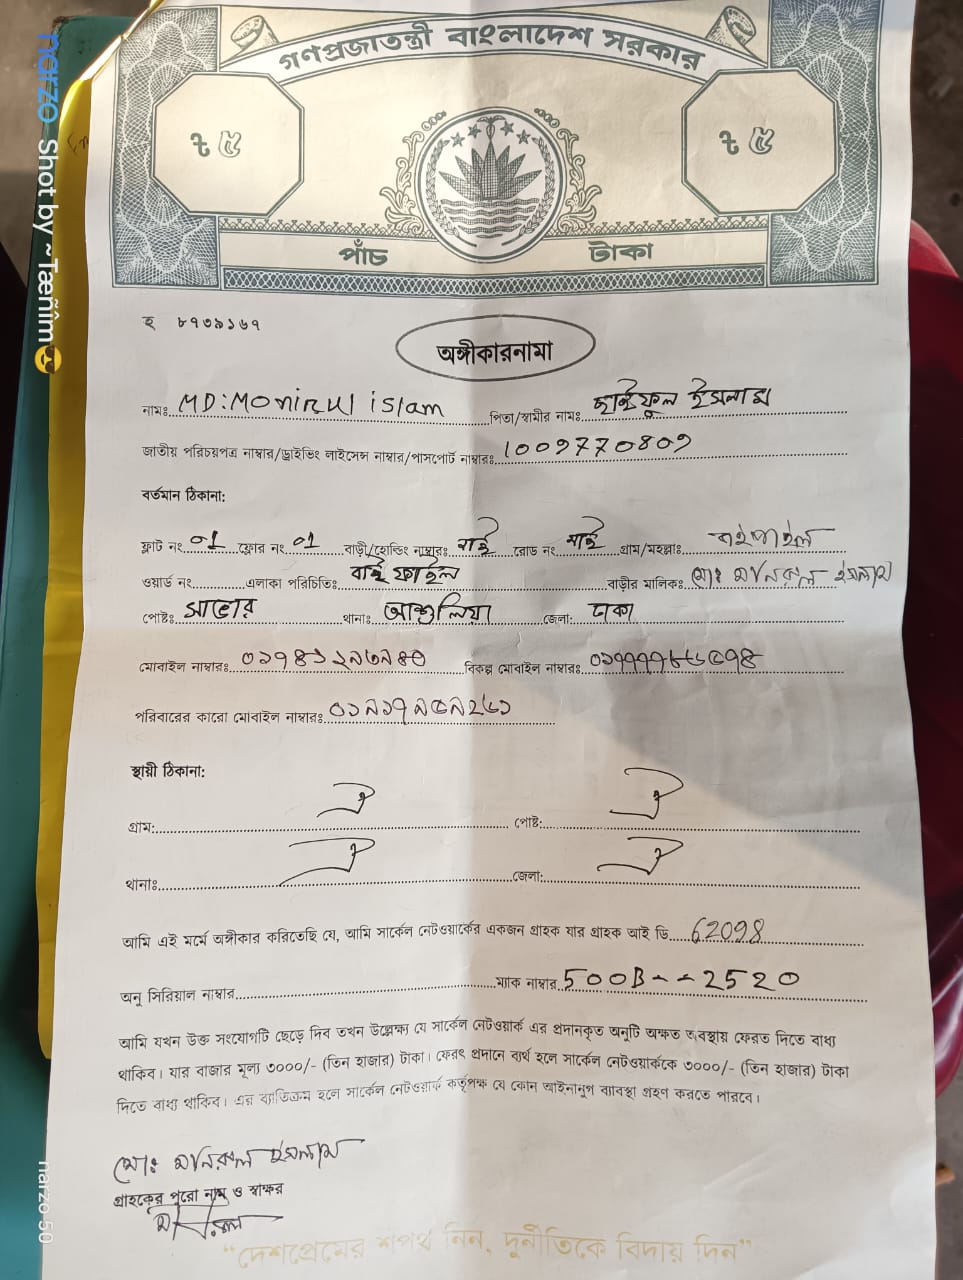 গণপ্রজাতন্ত্রী বাংলাদেশ সরকার
৳ ৫ ৳ ৫
পাঁচ টাকা
হ ৮৭৩৯১৬৭
অঙ্গীকারনামা
নামঃ MD:Monirul islam পিতা/স্বামীর নামঃ ছাইফুল ইসলাম
জাতীয় পরিচয়পত্র নাম্বার/ড্রাইভিং লাইসেন্স নাম্বার/পাসপোর্ট নাম্বারঃ 1009770809
বর্তমান ঠিকানা:
ফ্লাট নং 01 ফ্লোর নং 01 বাড়ী/হোল্ডিং নাম্বারঃ নাই রোড নং নাই গ্রাম/মহল্লাঃ বাইপাইল
ওয়ার্ড নং এলাকা পরিচিতিঃ বাই ফাইল বাড়ীর মালিকঃ মোঃ মনিরুল ইসলাম
পোষ্টঃ সাভার থানাঃ আশুলিয়া জেলা: ঢাকা
মোবাইল নাম্বারঃ বিকল্প মোবাইল নাম্বারঃ
পরিবারের কারো মোবাইল নাম্বারঃ
স্থায়ী ঠিকানা:
গ্রাম: পোষ্ট:
থানাঃ জেলা:
আমি এই মর্মে অঙ্গীকার করিতেছি যে, আমি সার্কেল নেটওয়ার্কের একজন গ্রাহক যার গ্রাহক আই ডি 62098
অনু সিরিয়াল নাম্বার ম্যাক নাম্বার 500B--2520
আমি যখন উক্ত সংযোগটি ছেড়ে দিব তখন উল্লেক্ষ্য যে সার্কেল নেটওয়ার্ক এর প্রদানকৃত অনুটি অক্ষত অবস্থায় ফেরত দিতে বাধ্য
থাকিব। যার বাজার মূল্য ৩০০০/- (তিন হাজার) টাকা। ফেরৎ প্রদানে ব্যর্থ হলে সার্কেল নেটওয়ার্ককে ৩০০০/- (তিন হাজার) টাকা
দিতে বাধ্য থাকিব। এর ব্যতিক্রম হলে সার্কেল নেটওয়ার্ক কর্তৃপক্ষ যে কোন আইনানুগ ব্যাবস্থা গ্রহণ করতে পারবে।
মোঃ মনিরুল ইসলাম
গ্রাহকের পুরো নাম ও স্বাক্ষর
"দেশপ্রেমের শপথ নিন, দুর্নীতিকে বিদায় দিন"
narzo Shot by ~ Tæñîm😎
narzo 50